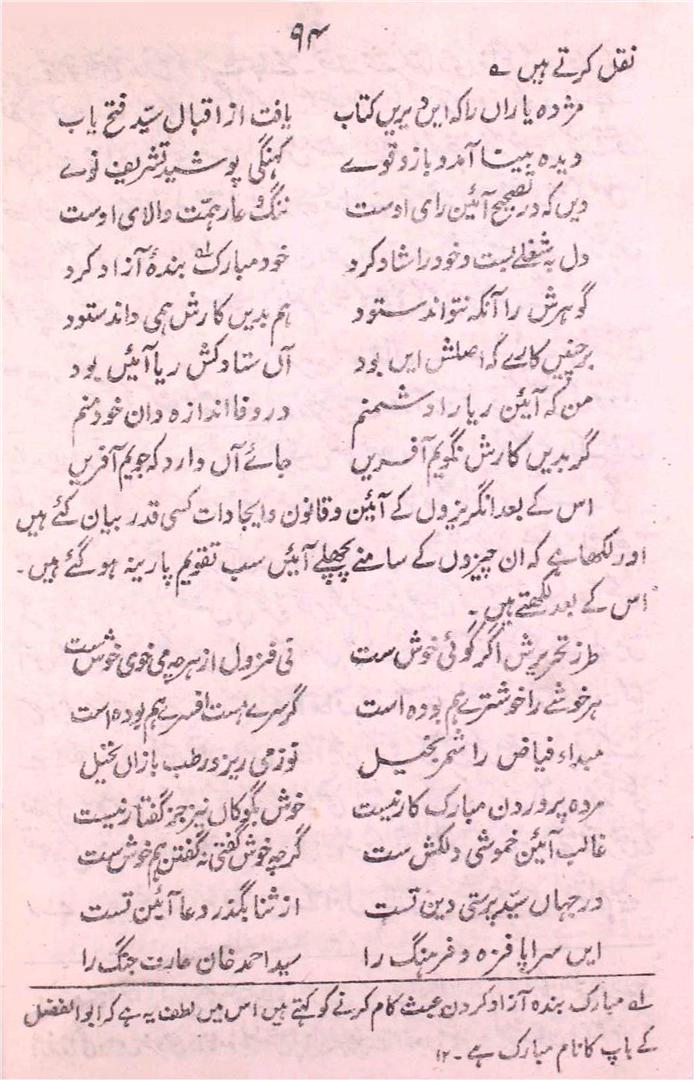 ۹۴
نقل کرتے ہیں ؎
مژدہ یاراں را کہ ایں دیریں کتاب یافت از اقبال سیّد فتح یاب
دیدہ بینا آمد و بازو قوے کہنگی پوشید تشریف نوے
دیں کہ در تصحیح آئین رای اوست ننگ و عار ہمّت والای اوست
دل بہ شغلے بست و خود را شاد کرد خود مبارک بندۂ آزاد کرد
گوہرش را آنکہ نتواند ستود ہم بدیں کارش ہمی داند ستود
بر چنیں کارے کہ اصلش ایں بود آں ستاید کش ریا آئیں بود
من کہ آئین ریا را دشمنم در وفا اندازہ دان خود منم
گر بدیں کارش نگویم آفریں جائے آں دارد کہ جویم آفریں
اس کے بعد انگریزوں کے آئین و قانون و ایجادات کسی قدر بیان کئے ہیں
اور لکھا ہے کہ ان چیزوں کے سامنے پچھلے آئیں سب تقویم پارینہ ہو گئے ہیں۔
اس کے بعد لکھتے ہیں۔
طرز تحریرش اگر گوئی خوش ست نی فزول از ہرچہ می جوی خوش ست
ہر خوشے را خوشترے ہم بودہ است گر سرے ہست افسرے ہم بودہ است
مبداء فیاض را مشمر بخیل نوز می ریزد رطب بازاں نخیل
مردہ پروردن مبارک کار نیست خوش بگو کاں نیز جز گفتار نیست
غالب آئین خموشی دلکش ست گرچہ خوش گفتی نہ گفتن ہم خوش ست
در جہاں سیّد پرستی دین تست از ثنا بگذر دعا آئین تست
ایں سراپا فرہ و فرہنگ را سید احمد خان عارف جنگ را
لہ مبارک بندہ آزاد کردن عبث کام کرنے کو کہتے ہیں اس میں لطف یہ ہے کہ ابو الفضل
کے باپ کا نام مبارک ہے۔ ۱۲